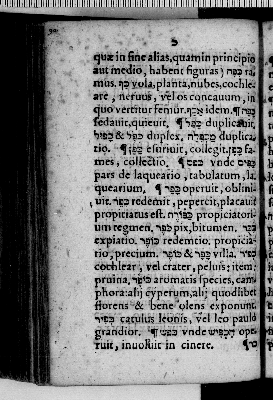 כ
quæ in fine alias, quam in principio
aut medio, habent figuras) כִּפָּה ra-
mus. כַּף vola, planta, nubes, cochle-
are, neruus, vel os concauum, in
quo vertitur femur. אֶכֶף idem. ¶
sedauit, quieuit. ¶ כָּפַל duplicauit,
כֶּפֶל & כָּפוּל duplex, duplica-
tio. ¶ כָּפַן esuriuit, collegit, כָּפָן fa-
mes, collectio. ¶ vnde כָּפִיס
pars de laqueario, tabulatum, la-
quearium. ¶ כָּפַר operuit, obliui-
uit. כִּפֶּר redemit, pepercit, placauit
propitiatus est. כַּפֹּרֶת propiciatori-
um tegmen, כֹּפֶר pix, bitumen.
expiatio. כֹּפֶר redemtio. propicia-
tio, precium. כָּפָר & כֹּפֶר villa.
cochlear, vel crater, peluis; item;
pruina, כֹּפֶר aromatis species, cam-
phora: alij cyperum, alij quodlibet
florens & bene olens exponunt.
כְּפִיר catulus leonis, vel leo paulò
grandior. ¶ כפש vnde הִכְפִּישׁ ope-
ruit, inuoluit in cinere.